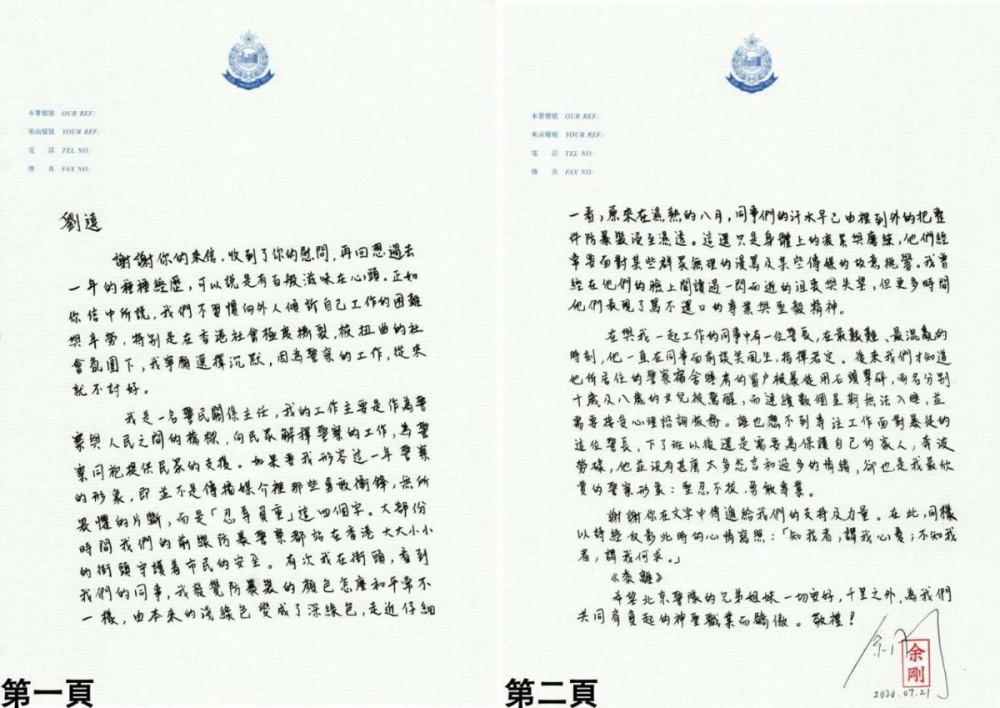 本署檔號 OUR REF:
來函檔號 YOUR REF:
電 話 TEL NO:
傳 真 FAX NO:
劉遠
謝謝你的來信,收到了你的慰問,再回思過去
一年的種種經歷,可以說是有百般滋味在心頭。正如
你信中所說,我們不習慣向外人傾訴自己工作的困難
與辛勞,特別是在香港社會極度撕裂,被扭曲的社
會氛圍下,我寧願選擇沉默,因為警察的工作,從來
就不討好。
我是一名警民關係主任,我的工作主要是作為警
察與人民之間的橋樑,向民眾解釋警察的工作,為警
察同袍提供民眾的支援。如果要我形容這一年警察
的形象,即並不是傳播媒介裡那些勇敢衝鋒,無所
畏懼的片斷,而是「忍辱負重」這四個字。大部份
時間我們的前線防暴警察都站在香港大大小小
的街頭守護着市民的安全。有次我在街頭,看到
我們的同事,我發覺防暴裝的顏色怎麼和平常不
一樣,由本來的淺綠色變成了深綠色,走近仔細
第一頁
本署檔號 OUR REF:
來函檔號 YOUR REF:
電 話 TEL NO:
傳 真 FAX NO:
一看,原來在濕熱的八月,同事們的汗水早已由裡到外的把整
件防暴裝浸至濕透。這還只是身體上的疲累與磨練,他們經
常要面對某些群眾無理的謾罵及某些傳媒的故意挑釁。我曾
經在他們的臉上閱讀過一閃而逝的沮喪與失望,但更多時間
他們表現了萬不選一的專業與堅毅精神。
在與我一起工作的同事中有一位警長,在最艱難、最混亂的
時刻,他一直在同事面前談笑風生,指揮若定。後來我們才知道
他所居住的警察宿舍睡房的窗戶被暴徒用石頭擊碎,兩名分別
十歲及八歲的女兒被驚醒,而連續數個星期無法入睡,並
需要接受心理諮詢服務。誰也想不到專注工作面對暴徒的
這位警長,下了班以後還是需要為保護自己的家人,奔波
勞碌,他並沒有甚麼太多怨言和過多的情緒,卻也是我最欣
賞的警察形象:堅忍不拔,勇敢專業。
謝謝你在文字中傳遞給我們的支持及力量。在此,同樣
以詩經反影此時的心情寫照:「知我者,謂我心憂;不知我
者,謂我何求。」
《黍離》
希望北京警隊的兄弟姐妹一切安好,千里之外,為我們
共同肩負起的神聖職業而驕傲。敬禮!
余剛
2020.07.21
第二頁